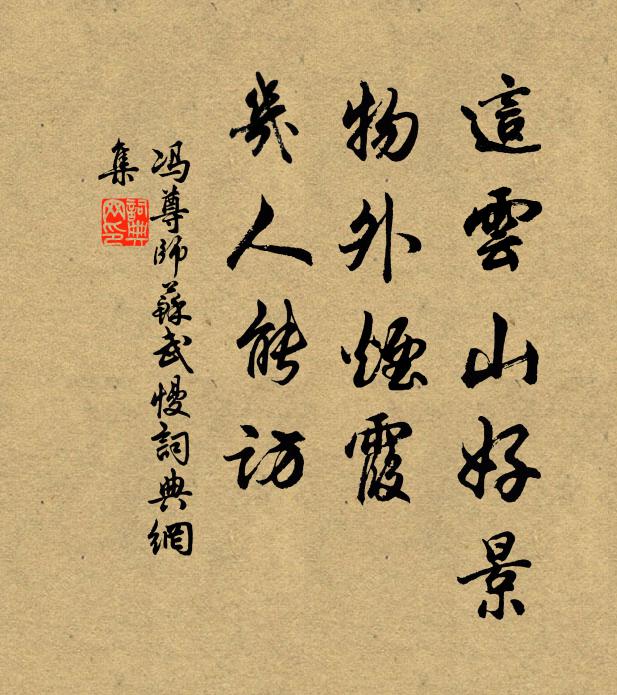 這雲山好景
物外煙霞
幾人能訪
冯尊師蘇武慢詞典網
集
詞典网印